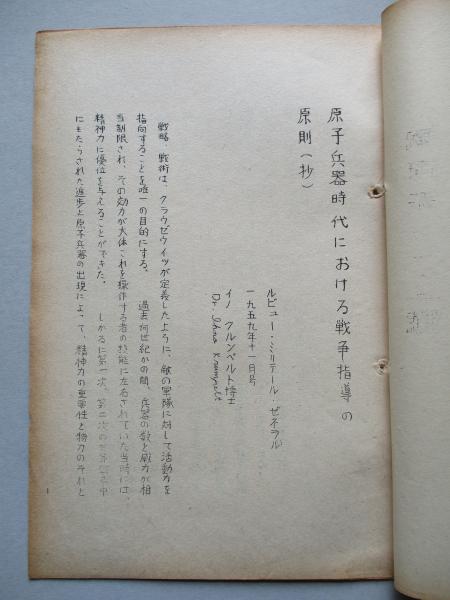 原子兵器時代における戦争指導の
原則(抄)
ルビュー・ミリテール・ゼネラル
一九五九年十一月号
イノ クルンペルト博士
Dr. Ihno Krumpelt
戦略、戦術は、クラウゼウイッツが定義したように、敵の軍隊に対して活動力を
指向することを唯一の目的にする。 過去何世紀かの間、兵器の数と威力が相
当制限され、その効力が大体これを操作する者の技能に左右されていた当時には、
精神力に優位を与えることができた。 しかるに第一次、第二次の
にもたらされた進歩と原子兵器の出現によって、精神力の重要性と物力のそれと